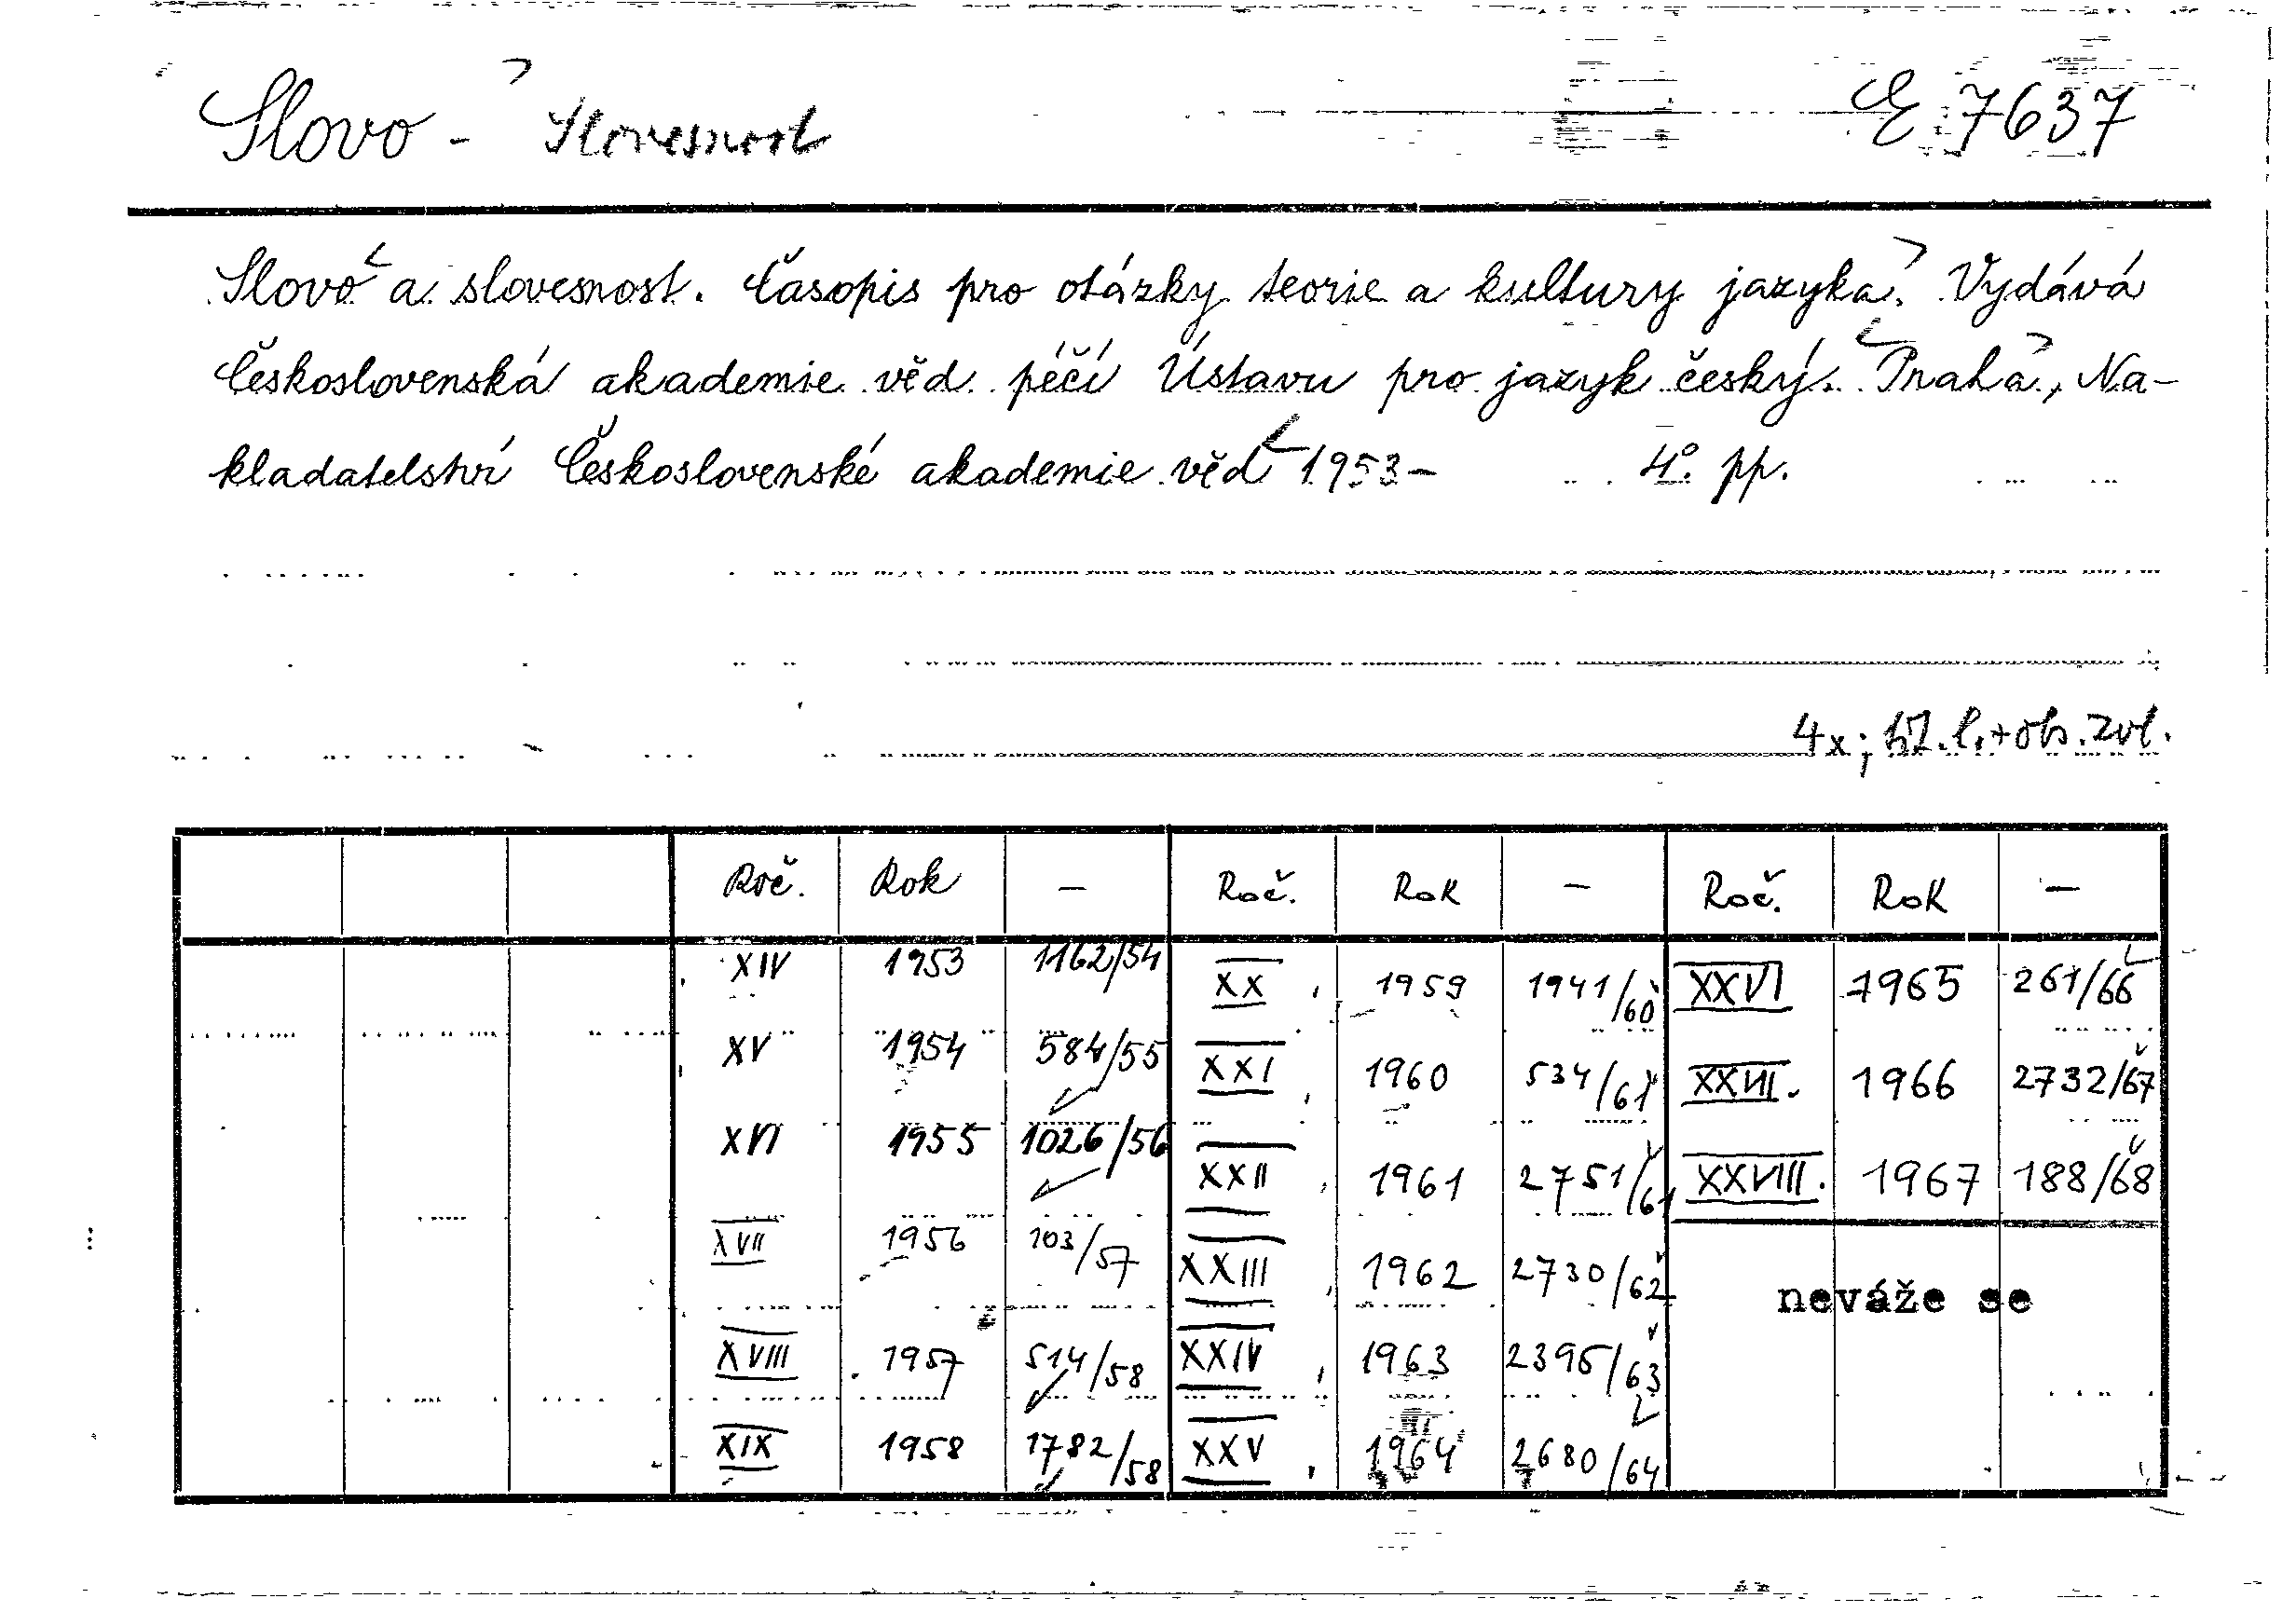 Slovo - Slovesnost E 7637
Slovo a slovesnost. Časopis pro otázky teorie a kultury jazyka. Vydává
Československá akademie věd péčí Ústavu pro jazyk český. Praha, Na-
kladatelství Československé akademie věd 1953- 4° pp.
4x; tit. l. + obs. zvl.
Roč. Rok - Roč. Rok - Roč. Rok -
XIV 1953 1162/54 XX 1959 1941/60 XXVI 1965 261/66
XV 1954 584/55 XXI 1960 534/61 XXVII. 1966 2732/67
XVI 1955 1026/56 XXII 1961 2751/61 XXVIII. 1967 188/68
XVII 1956 103/57 XXIII 1962 2730/62 neváže se
XVIII 1957 514/58 XXIV 1963 2395/63
XIX 1958 1782/58 XXV 1964 2680/64